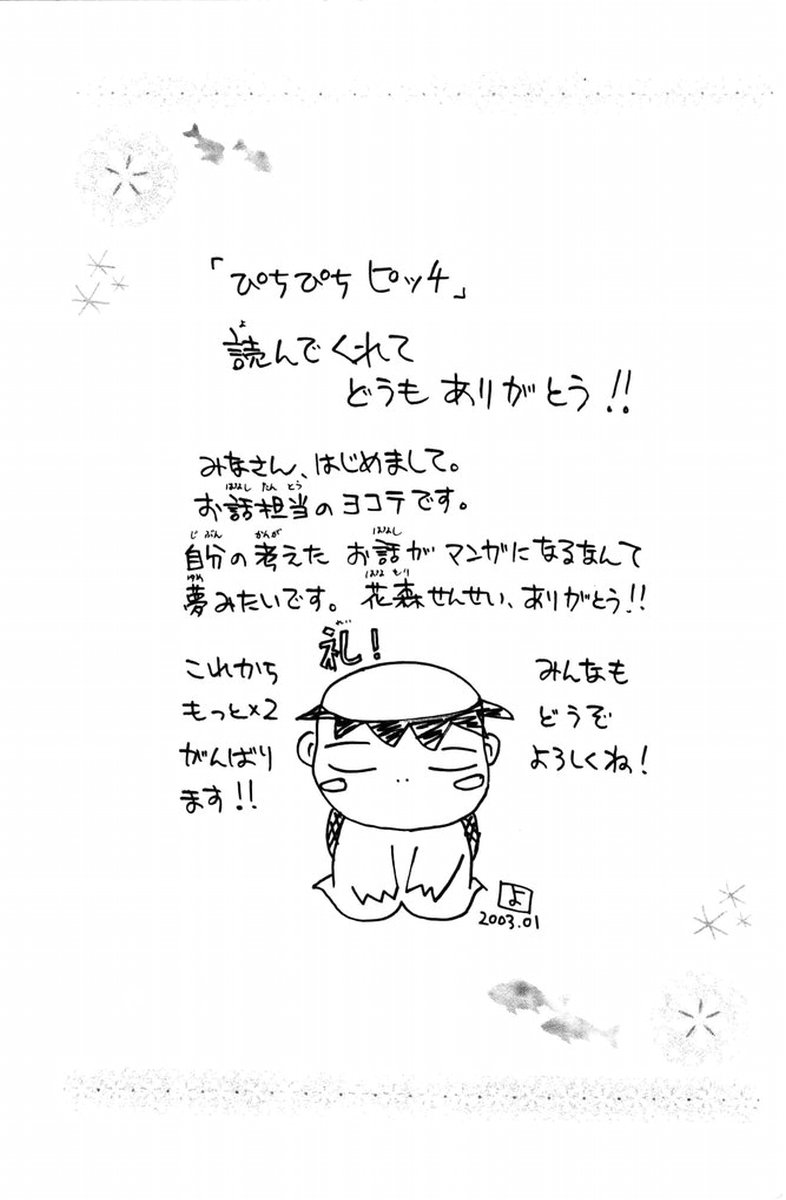 「ぴちぴちピッチ」
読んでくれて
どうもありがとう!!
みなさん、はじめまして。
お話担当のヨコテです。
自分の考えた お話が マンガになるなんて
夢みたいです。 花森せんせい、ありがとう!!
礼!
これから
もっと×2
がんばり
ます!!
みんなも
どうぞ
よろしくね!
よ
2003.01